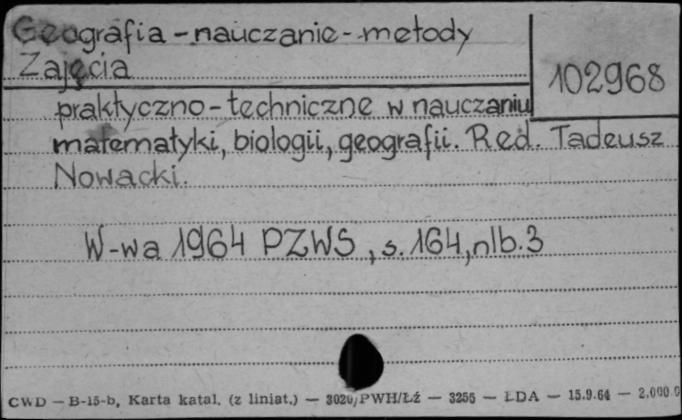 Geografia - nauczanie - metody
Zajęcia
102968
praktyczno - techniczne w nauczaniu
matematyki, biologii, geografii. Red. Tadeusz
Nowacki.
W-wa 1964 PZWS, s. 164, nlb. 3
CWD — B-15-b, Karta katal. (z liniat.) — 3020/PWH/Łź — 3256 — ŁDA — 15.9.64 — 2.000.0